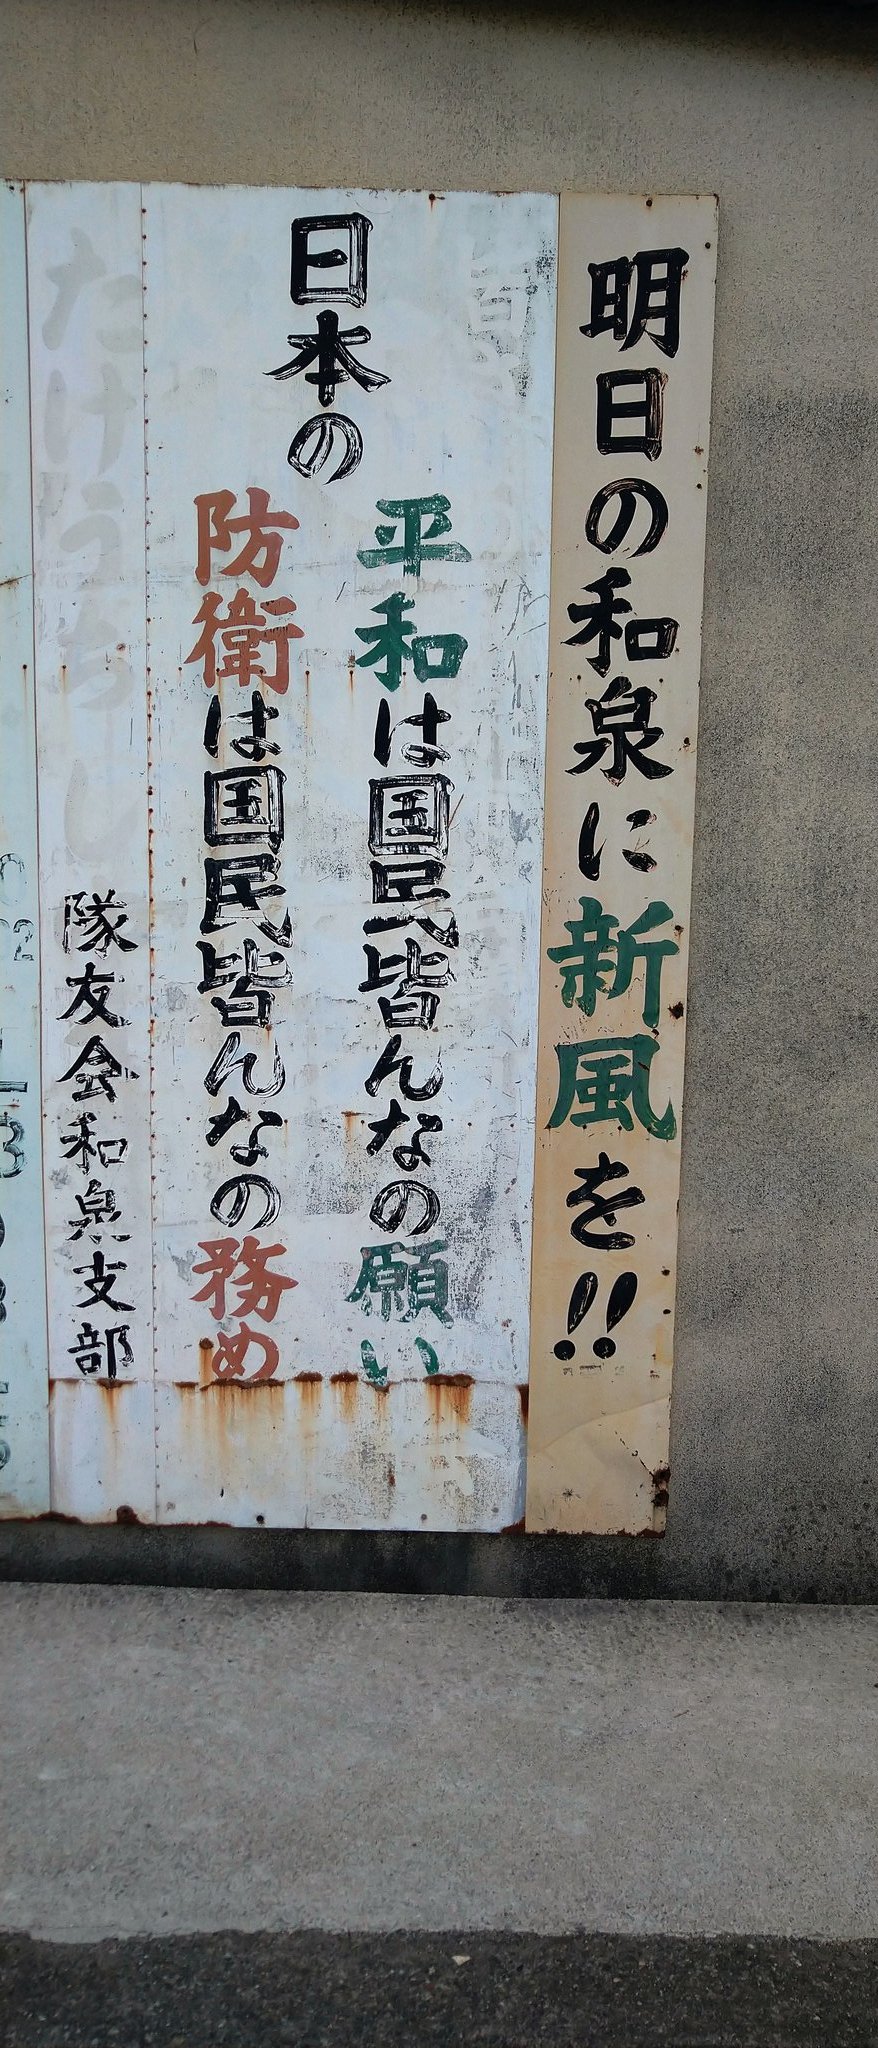 明日の和泉に新風を!!
日本の
平和は国民皆んなの願い
防衛は国民皆んなの務め
たけうちし
隊友会和泉支部